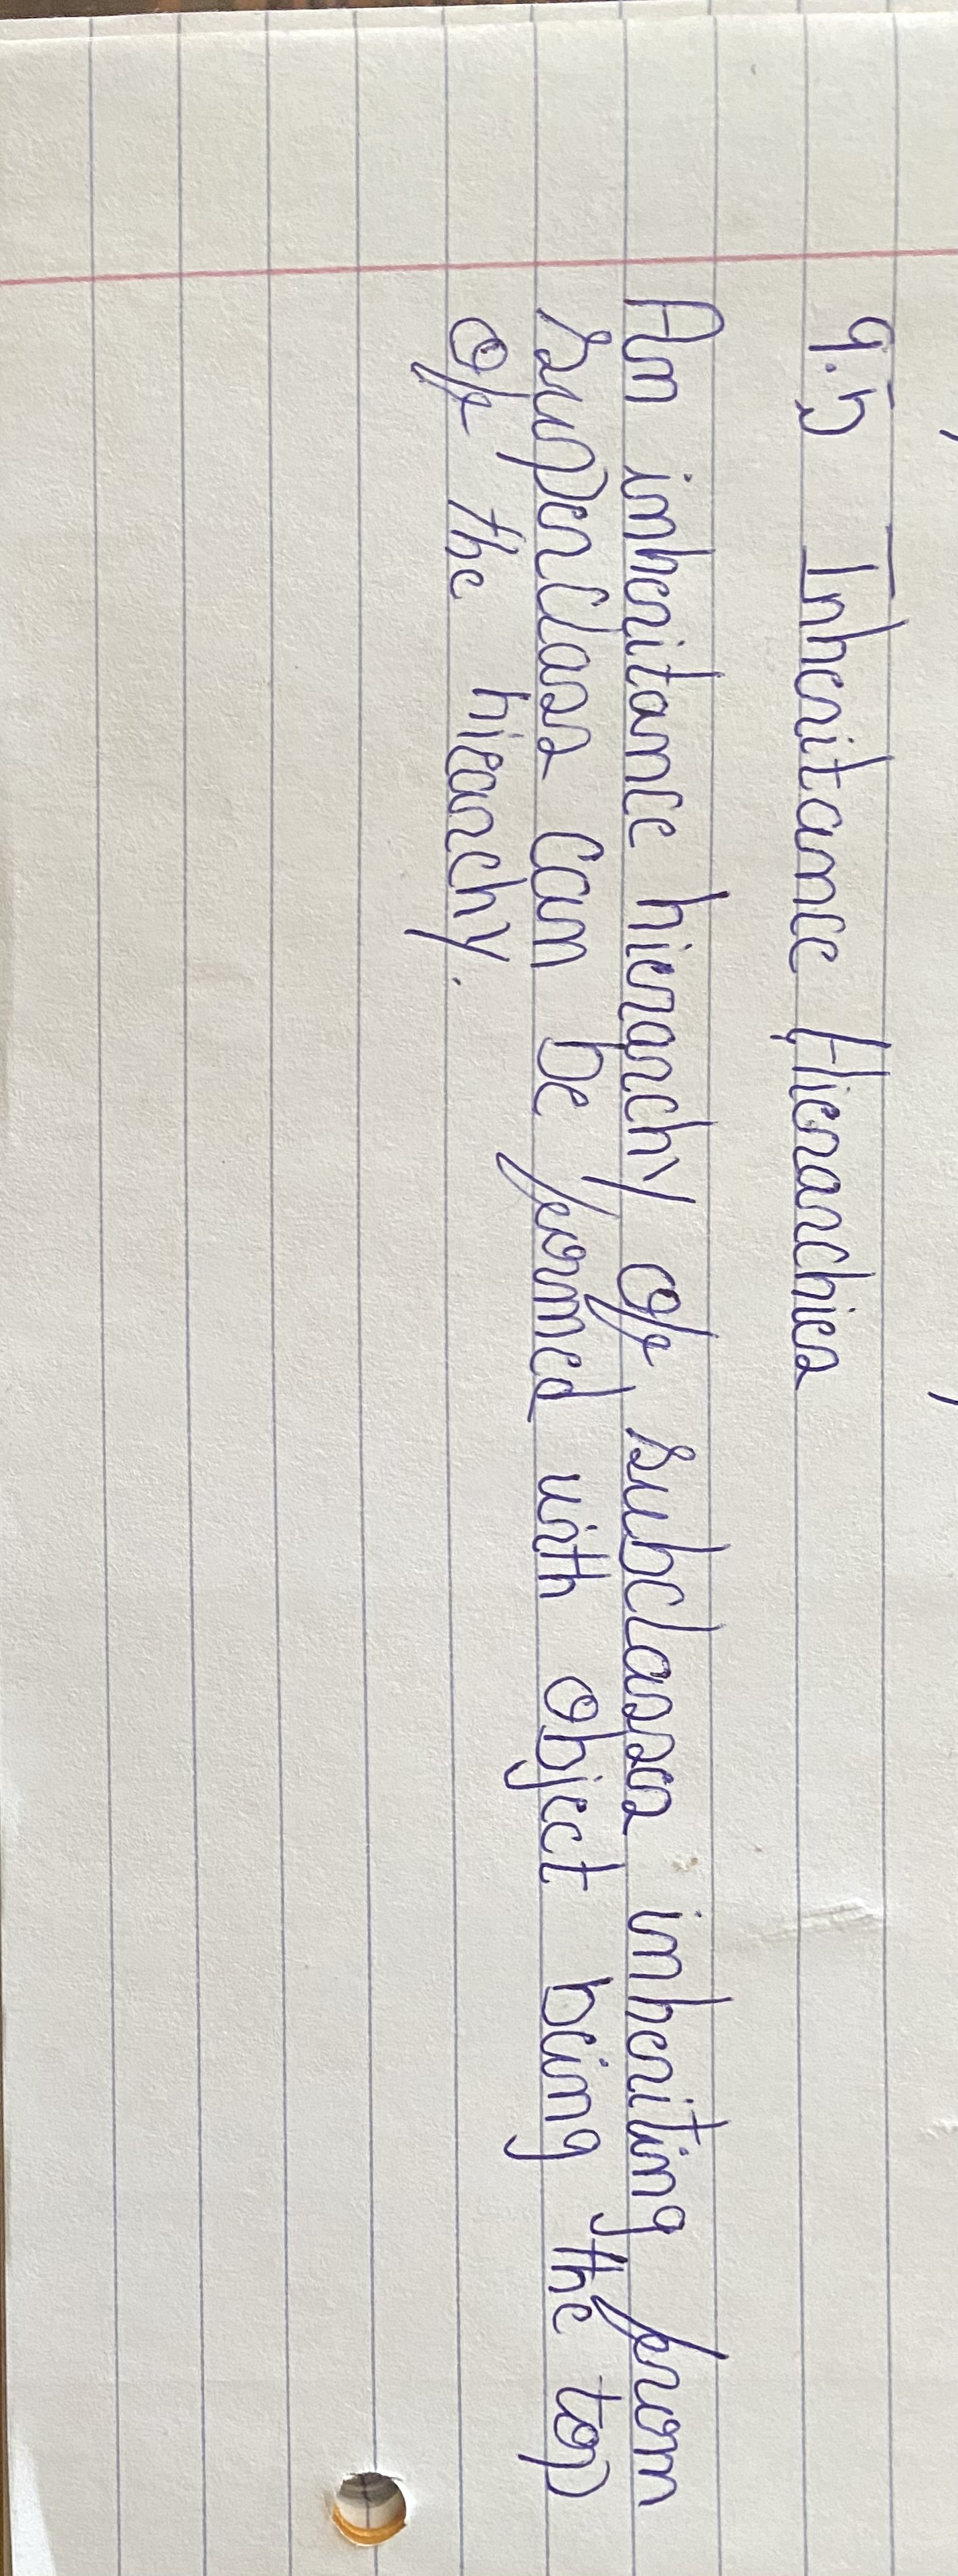 9.5 Inheritance Hierarchies
An inheritance hierarchy of subclasses inheriting from
superclass can be formed with object being the top
of the hiearchy.